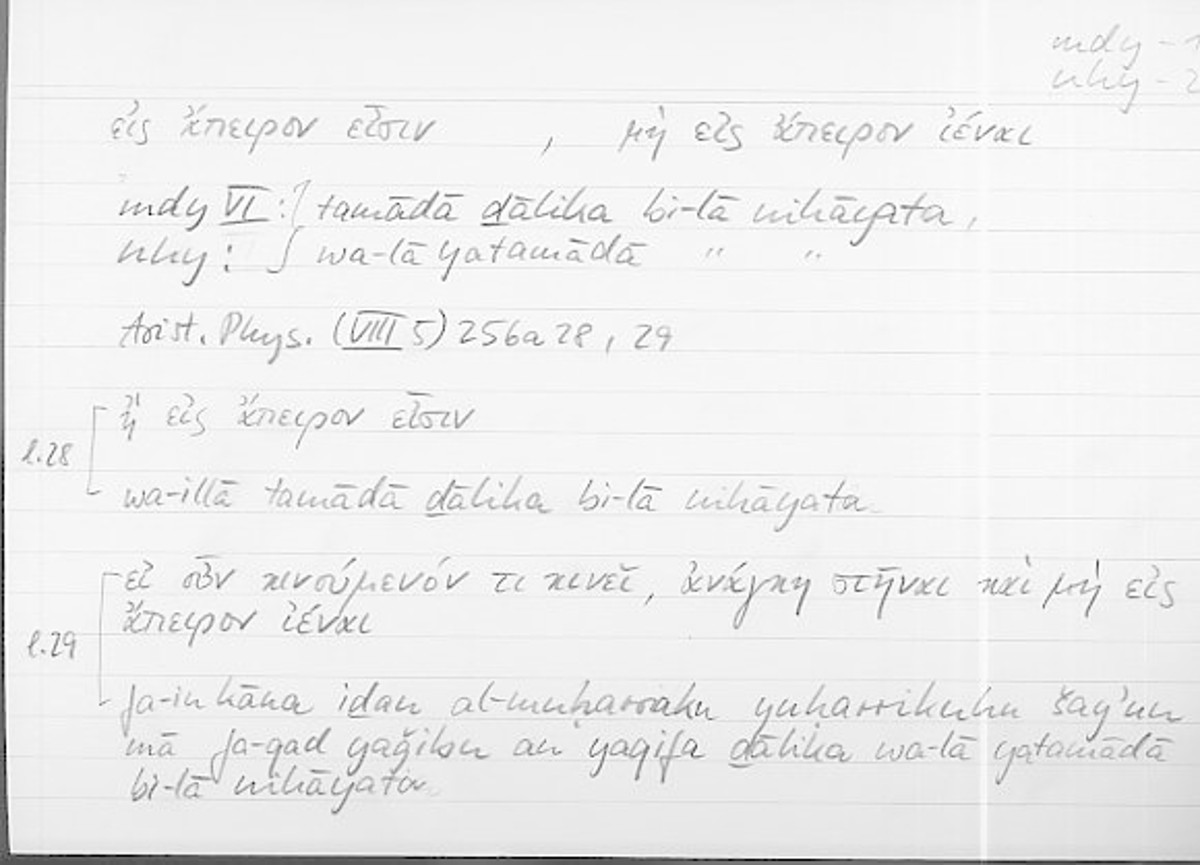 mdy - 1
nhy - 2
εἰς ἄπειρον εἶσιν , μὴ εἰς ἄπειρον ἰέναι
mdy VI : tamādā ḏālika bi-lā nihāyata,
nhy : wa-lā yatamādā " "
Arist. Phys. (VIII 5) 256a 28, 29
ἢ εἰς ἄπειρον εἶσιν
l.28
wa-illā tamādā ḏālika bi-lā nihāyata
εἰ οὖν κινούμενόν τι κινεῖ, ἀνάγκη στῆναι καὶ μὴ εἰς
ἄπειρον ἰέναι
l.29
fa-in kāna iḏan al-muḥarraku yuḥarrikuhu šay'un
mā fa-qad yaǧibu an yaqifa ḏālika wa-lā yatamādā
bi-lā nihāyata